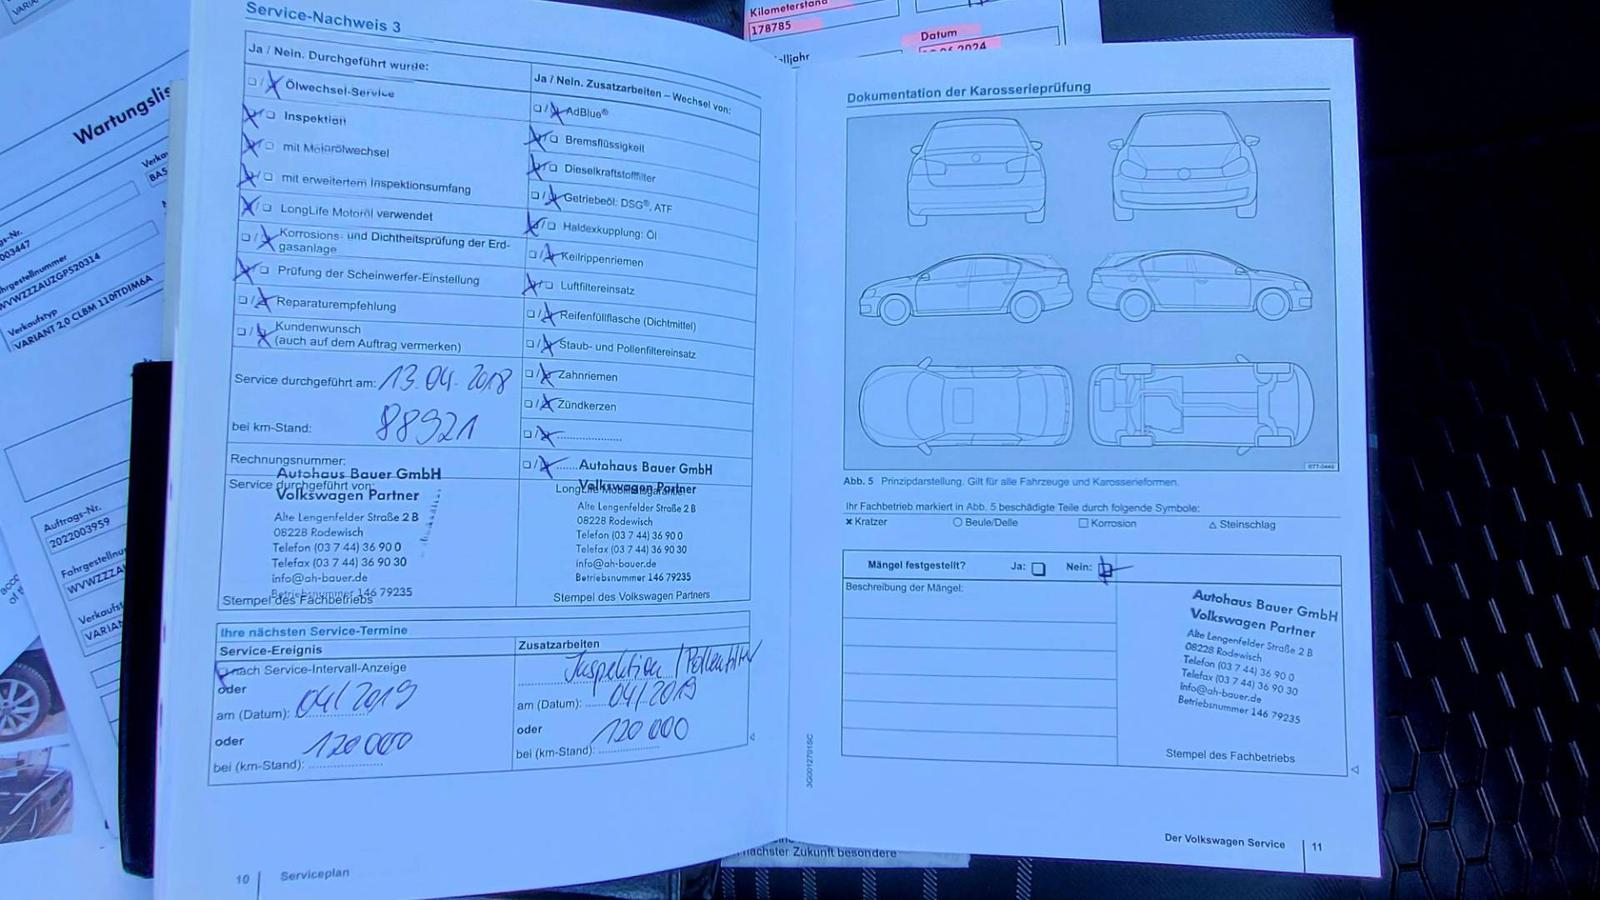 Wartungslis
003447
hrgestellnummer
WVWZZZAUZGP520314
Verkaufstyp
VARIANT 2,0 CLBM 110ITDIM6A
Auftrags-Nr.
2022003959
Fahrgestellnu
WVWZZZA
Verkaufst
VARIAN
Kilometerstand
178785
Datum
2024
Service-Nachweis 3
Ja / Nein. Durchgeführt wurde:
Ölwechsel-Service
Inspektion
mit Motorölwechsel
mit erweitertem Inspektionsumfang
LongLife Motoröl verwendet
Korrosions- und Dichtheitsprüfung der Erd-
gasanlage
Prüfung der Scheinwerfer-Einstellung
Reparaturempfehlung
Kundenwunsch
(auch auf dem Auftrag vermerken)
Service durchgeführt am: 13.04.2018
bei km-Stand: 88921
Rechnungsnummer:
Service durchgeführt von:
Autohaus Bauer GmbH
Volkswagen Partner
Alte Lengenfelder Straße 2 B
08228 Rodewisch
Telefon (03 7 44) 36 90 0
Telefax (03 7 44) 36 90 30
info@ah-bauer.de
Betriebsnummer 146 79235
Stempel des Fachbetriebs
Ja / Nein. Zusatzarbeiten – Wechsel von:
AdBlue®
Bremsflüssigkeit
Dieselkraftstofffilter
Getriebeöl: DSG®, ATF
Haldexkupplung: Öl
Keilrippenriemen
Luftfiltereinsatz
Reifenfüllflasche (Dichtmittel)
Staub- und Pollenfiltereinsatz
Zahnriemen
Zündkerzen
Autohaus Bauer GmbH
Volkswagen Partner
Alte Lengenfelder Straße 2 B
08228 Rodewisch
Telefon (03 7 44) 36 90 0
Telefax (03 7 44) 36 90 30
info@ah-bauer.de
Betriebsnummer 146 79235
Stempel des Volkswagen Partners
Ihre nächsten Service-Termine
Service-Ereignis
nach Service-Intervall-Anzeige
oder
am (Datum): 04/2019
oder
bei (km-Stand): 120 000
Zusatzarbeiten
Inspektion / Pollenfilter
am (Datum): 04/2019
oder
bei (km-Stand): 120 000
10 Serviceplan
Dokumentation der Karosserieprüfung
Abb. 5 Prinzipdarstellung. Gilt für alle Fahrzeuge und Karosserieformen.
Ihr Fachbetrieb markiert in Abb. 5 beschädigte Teile durch folgende Symbole:
× Kratzer ○ Beule/Delle □ Korrosion △ Steinschlag
Mängel festgestellt? Ja: Nein:
Beschreibung der Mängel:
Autohaus Bauer GmbH
Volkswagen Partner
Alte Lengenfelder Straße 2 B
08228 Rodewisch
Telefon (03 7 44) 36 90 0
Telefax (03 7 44) 36 90 30
info@ah-bauer.de
Betriebsnummer 146 79235
Stempel des Fachbetriebs
3G0012701SC
Der Volkswagen Service 11
nächster Zukunft besondere